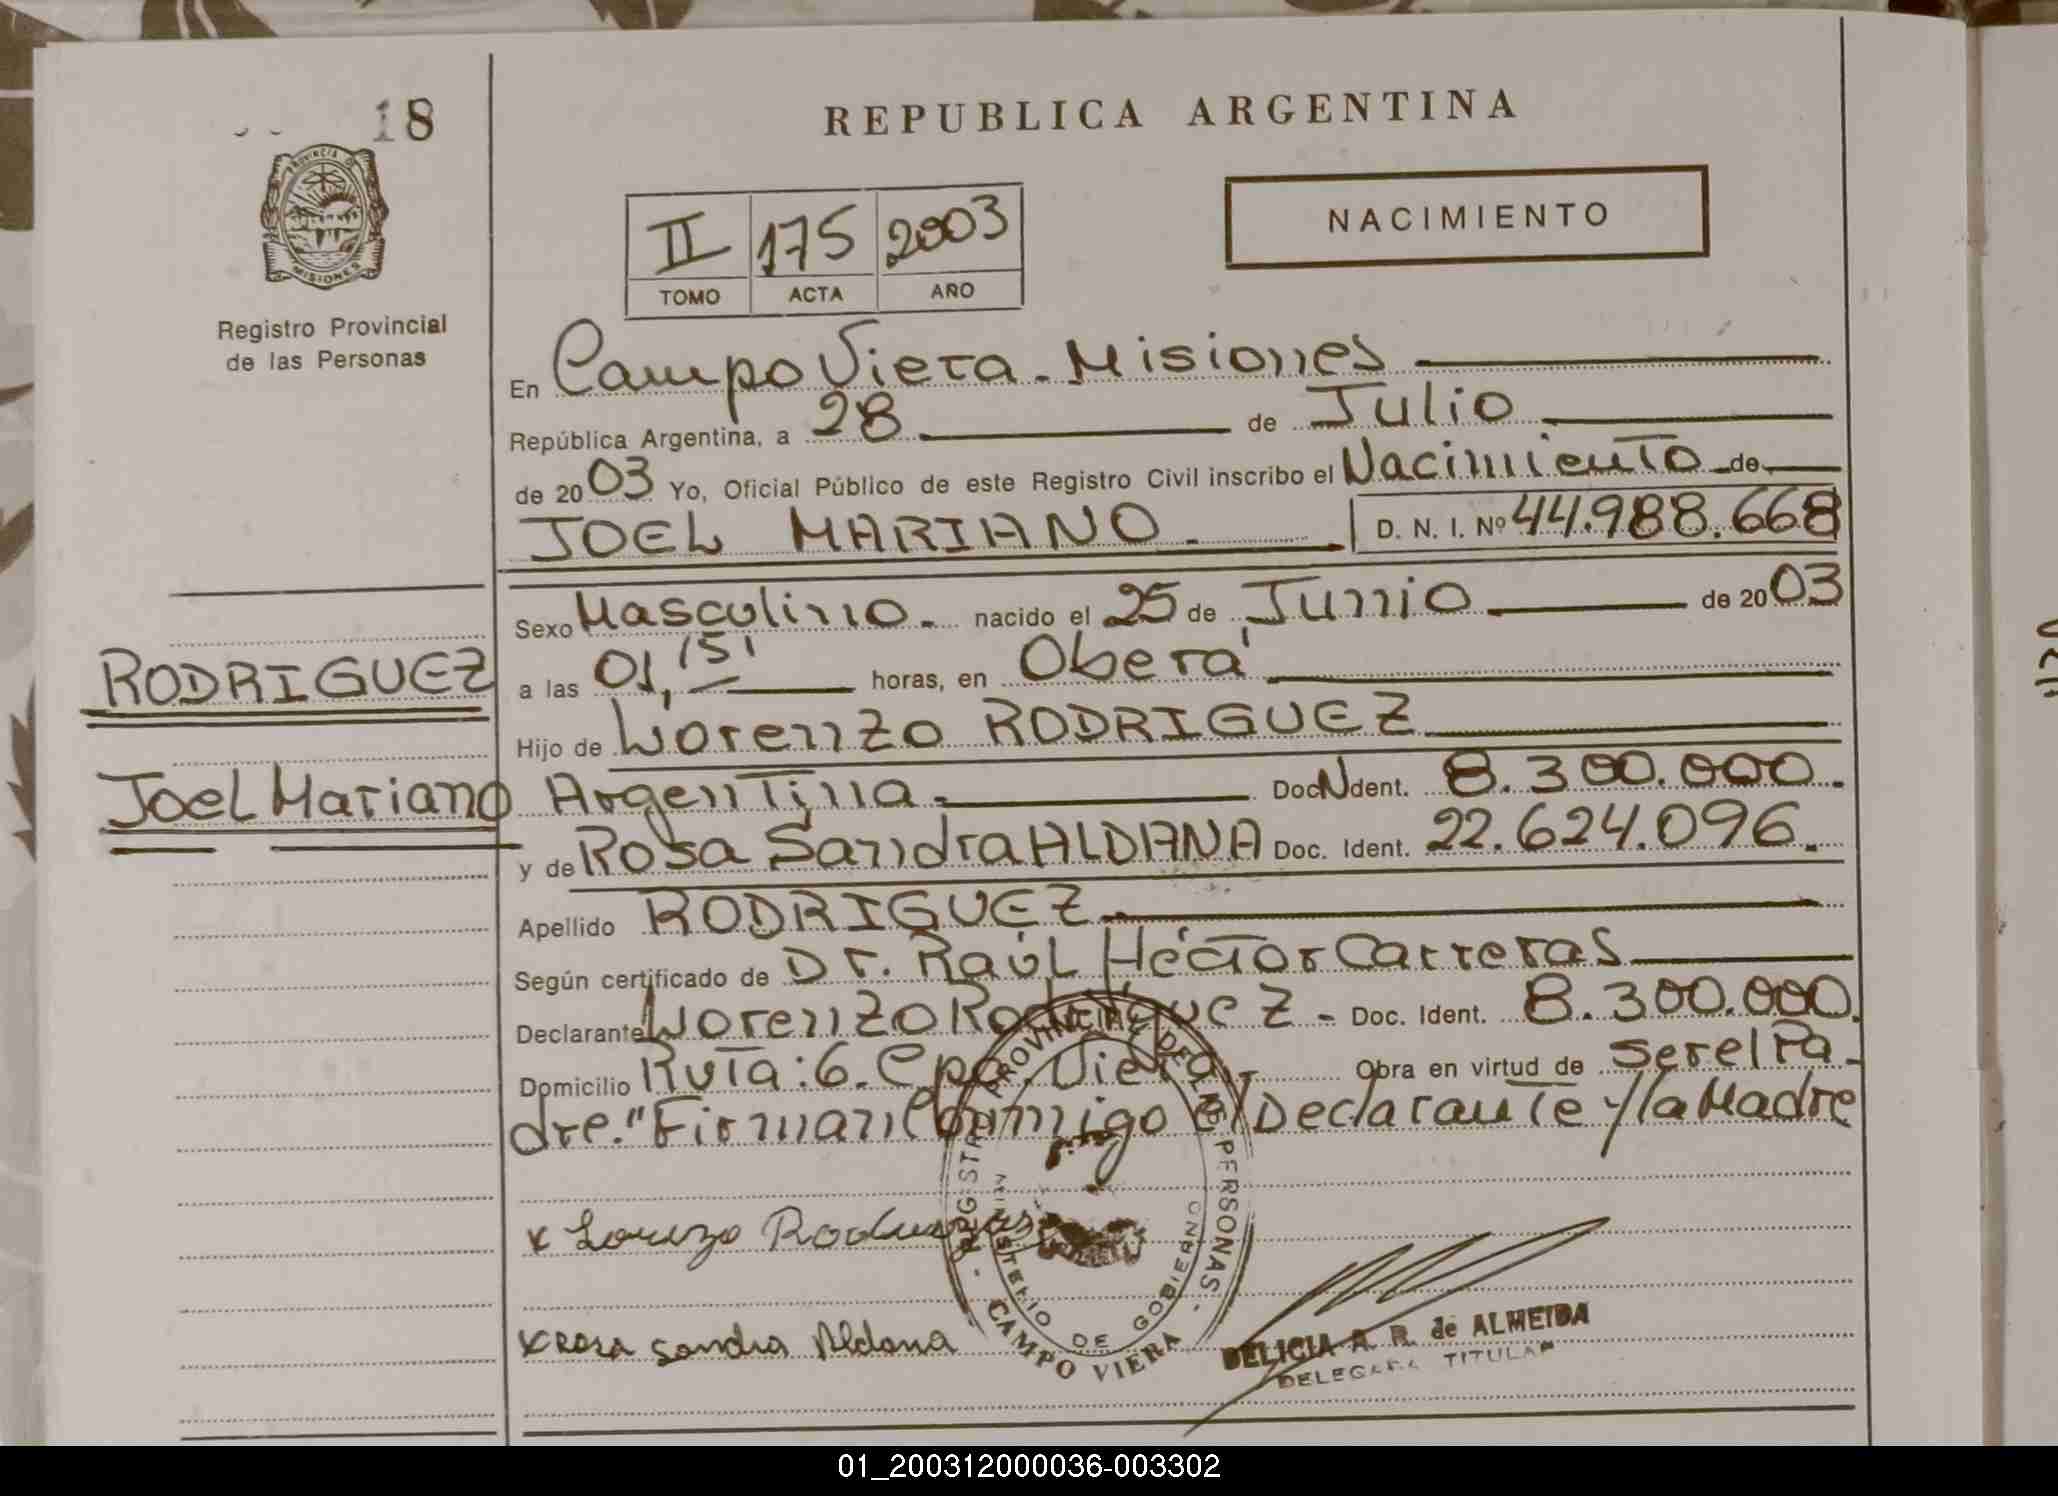 18
REPUBLICA ARGENTINA
PROVINCIA DE
MISIONES
II 175 2003
TOMO ACTA AÑO
NACIMIENTO
Registro Provincial
de las Personas
En Campo Viera - Misiones
República Argentina, a 28 de Julio
de 2003 Yo, Oficial Público de este Registro Civil inscribo el Nacimiento de
JOEL MARIANO - D. N. I. Nº 44.988.668
Sexo Masculino - nacido el 25 de Junio de 2003
a las 01,15' horas, en Oberá
RODRIGUEZ
Hijo de Lorenzo RODRIGUEZ
Joel Mariano
Argentina - Doc N Ident. 8.300.000.
y de Rosa Sandra ALDANA Doc. Ident. 22.624.096.
Apellido RODRIGUEZ
Según certificado de Dr. Raúl Héctor Carreras
Declarante Lorenzo Rodriguez - Doc. Ident. 8.300.000.
Domicilio Ruta: 6. Cpo. Viera - Obra en virtud de ser el Pa-
dre." Firman Conmigo el Declarante y la Madre
x Lorenzo Rodriguez
x Rosa Sandra Aldana
REGISTRO PROVINCIAL DE LAS PERSONAS -
MINISTERIO DE GOBIERNO
- CAMPO VIERA
DELICIA A. R. de ALMEIDA
DELEGADA TITULAR
01_200312000036-003302